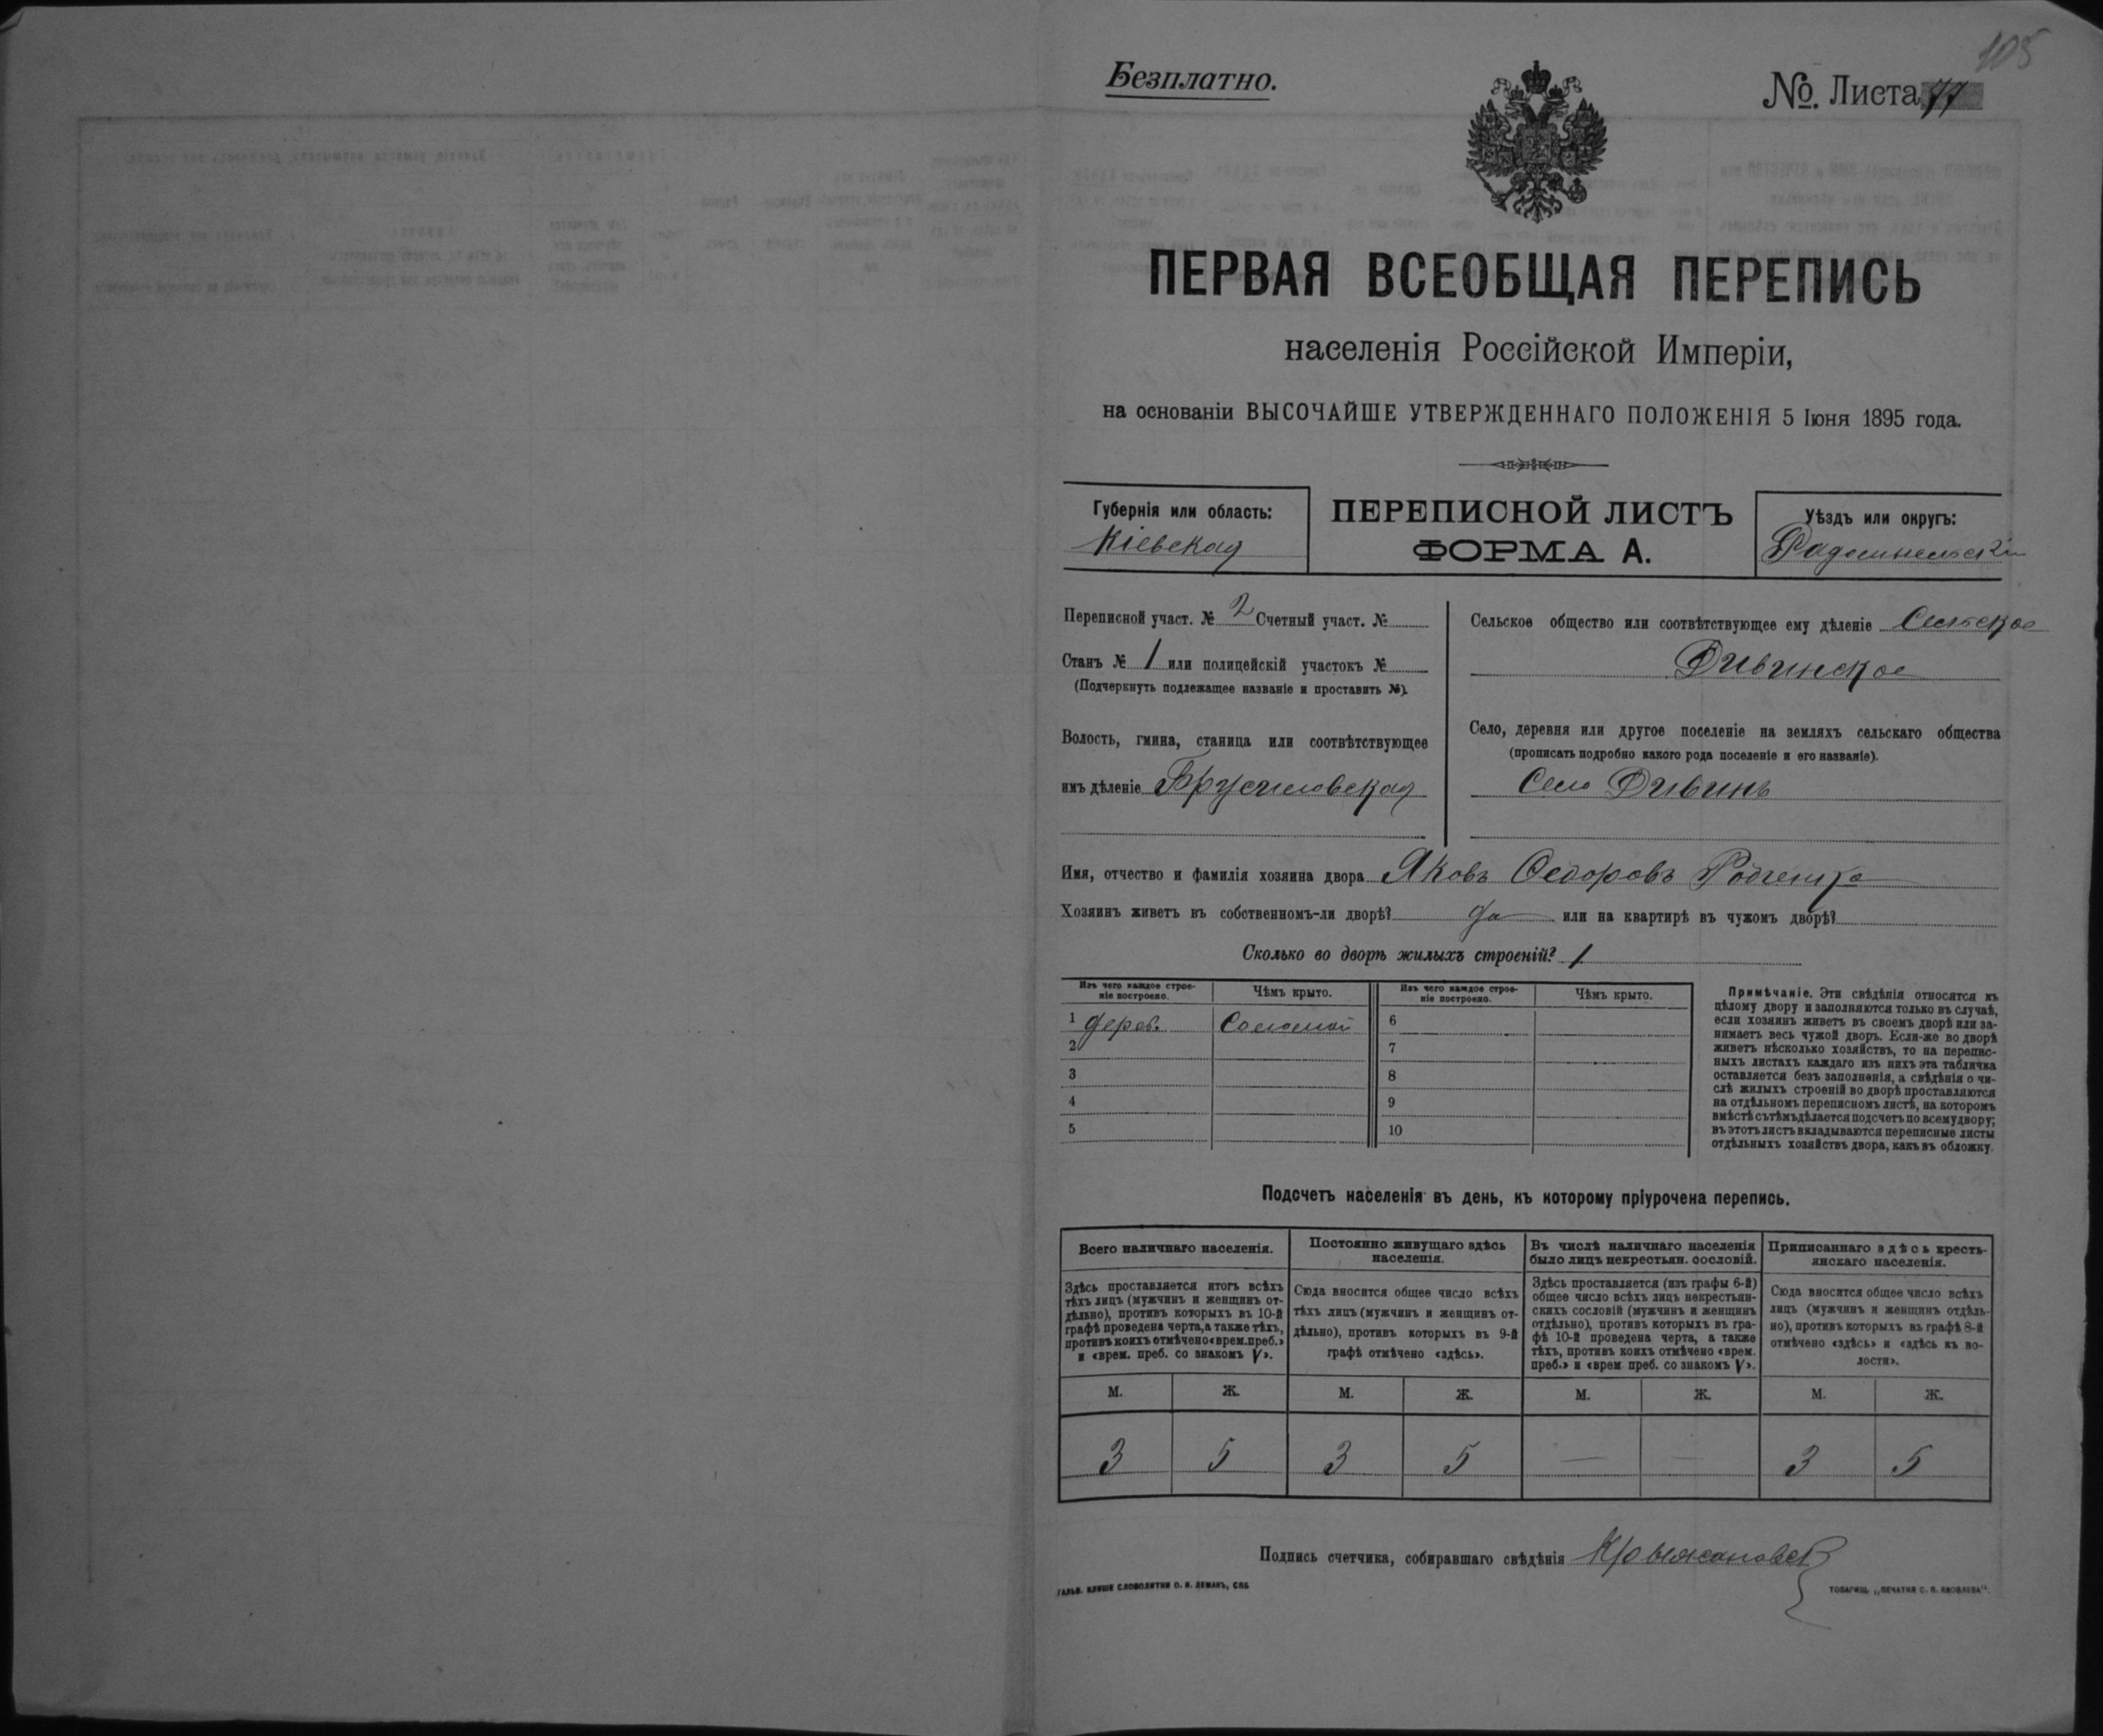 105
Безплатно.
№. Листа 77
ПЕРВАЯ ВСЕОБЩАЯ ПЕРЕПИСЬ
населенія Россійской Имперіи,
на основаніи ВЫСОЧАЙШЕ УТВЕРЖДЕННАГО ПОЛОЖЕНІЯ 5 Іюня 1895 года.
Губернія или область:
Кіевская
ПЕРЕПИСНОЙ ЛИСТЪ
ФОРМА А.
Уѣздъ или округъ:
Радомысльскій
Переписной участ. № 2 Счетный участ. №
Станъ № 1 или полицейскій участокъ №
(Подчеркнуть подлежащее названіе и проставить №).
Волость, гмина, станица или соотвѣтствующее
имъ дѣленіе Брусиловская
Сельское общество или соотвѣтствующее ему дѣленіе Сельское
Дивинское
Село, деревня или другое поселеніе на земляхъ сельскаго общества
(прописать подробно какого рода поселеніе и его названіе).
Село Дивинъ
Имя, отчество и фамилія хозяина двора Яковъ Ѳедоровъ
Хозяинъ живетъ въ собственномъ-ли дворѣ? да или на квартирѣ въ чужомъ дворѣ?
Сколько во дворѣ жилыхъ строеній? 1
Изъ чего каждое строе-
ніе построено.
Чѣмъ крыто.
Изъ чего каждое строе-
ніе построено.
Чѣмъ крыто.
1 дерев. Соломой 6
2 7
3 8
4 9
5 10
Примѣчаніе. Эти свѣдѣнія относятся къ
цѣлому двору и заполняются только въ случаѣ,
если хозяинъ живетъ въ своемъ дворѣ или за-
нимаетъ весь чужой дворъ. Если-же во дворѣ
живетъ нѣсколько хозяйствъ, то на перепис-
ныхъ листахъ каждаго изъ нихъ эта табличка
оставляется безъ заполненія, а свѣдѣнія о чи-
слѣ жилыхъ строеній во дворѣ проставляются
на отдѣльномъ переписномъ листѣ, на которомъ
вмѣстѣ съ тѣмъ дѣлается подсчетъ по всему двору;
въ этотъ листъ вкладываются переписные листы
отдѣльныхъ хозяйствъ двора, какъ въ обложку.
Подсчетъ населенія въ день, къ которому пріурочена перепись.
Всего наличнаго населенія.
Здѣсь проставляется итогъ всѣхъ
тѣхъ лицъ (мужчинъ и женщинъ от-
дѣльно), противъ которыхъ въ 10-й
графѣ проведена черта, а также тѣхъ,
противъ коихъ отмѣчено «врем. преб.»
и «врем. преб. со знакомъ V».
Постоянно живущаго здѣсь
населенія.
Сюда вносится общее число всѣхъ
тѣхъ лицъ (мужчинъ и женщинъ от-
дѣльно), противъ которыхъ въ 9-й
графѣ отмѣчено «здѣсь».
Въ числѣ наличнаго населенія
было лицъ некрестьян. сословій.
Здѣсь проставляется (изъ графы 6-й)
общее число всѣхъ лицъ некрестьян-
скихъ сословій (мужчинъ и женщинъ
отдѣльно), противъ которыхъ въ гра-
фѣ 10-й проведена черта, а также
тѣхъ, противъ коихъ отмѣчено «врем.
преб.» и «врем преб. со знакомъ V».
Приписаннаго здѣсь кресть-
янскаго населенія.
Сюда вносится общее число всѣхъ
лицъ (мужчинъ и женщинъ отдѣль-
но), противъ которыхъ въ графѣ 8-й
отмѣчено «здѣсь» и «здѣсь къ во-
лости».
М. Ж. М. Ж. М. Ж. М. Ж.
3 5 3 5 — — 3 5
Подпись счетчика, собиравшаго свѣдѣнія Крыжановск
ГАЛЬВ. КЛИШЕ СЛОВОЛИТНИ О. И. ЛЕМАНЪ, СПБ
ТОВАРИЩ. „ПЕЧАТНЯ С. П. ЯКОВЛЕВА“.